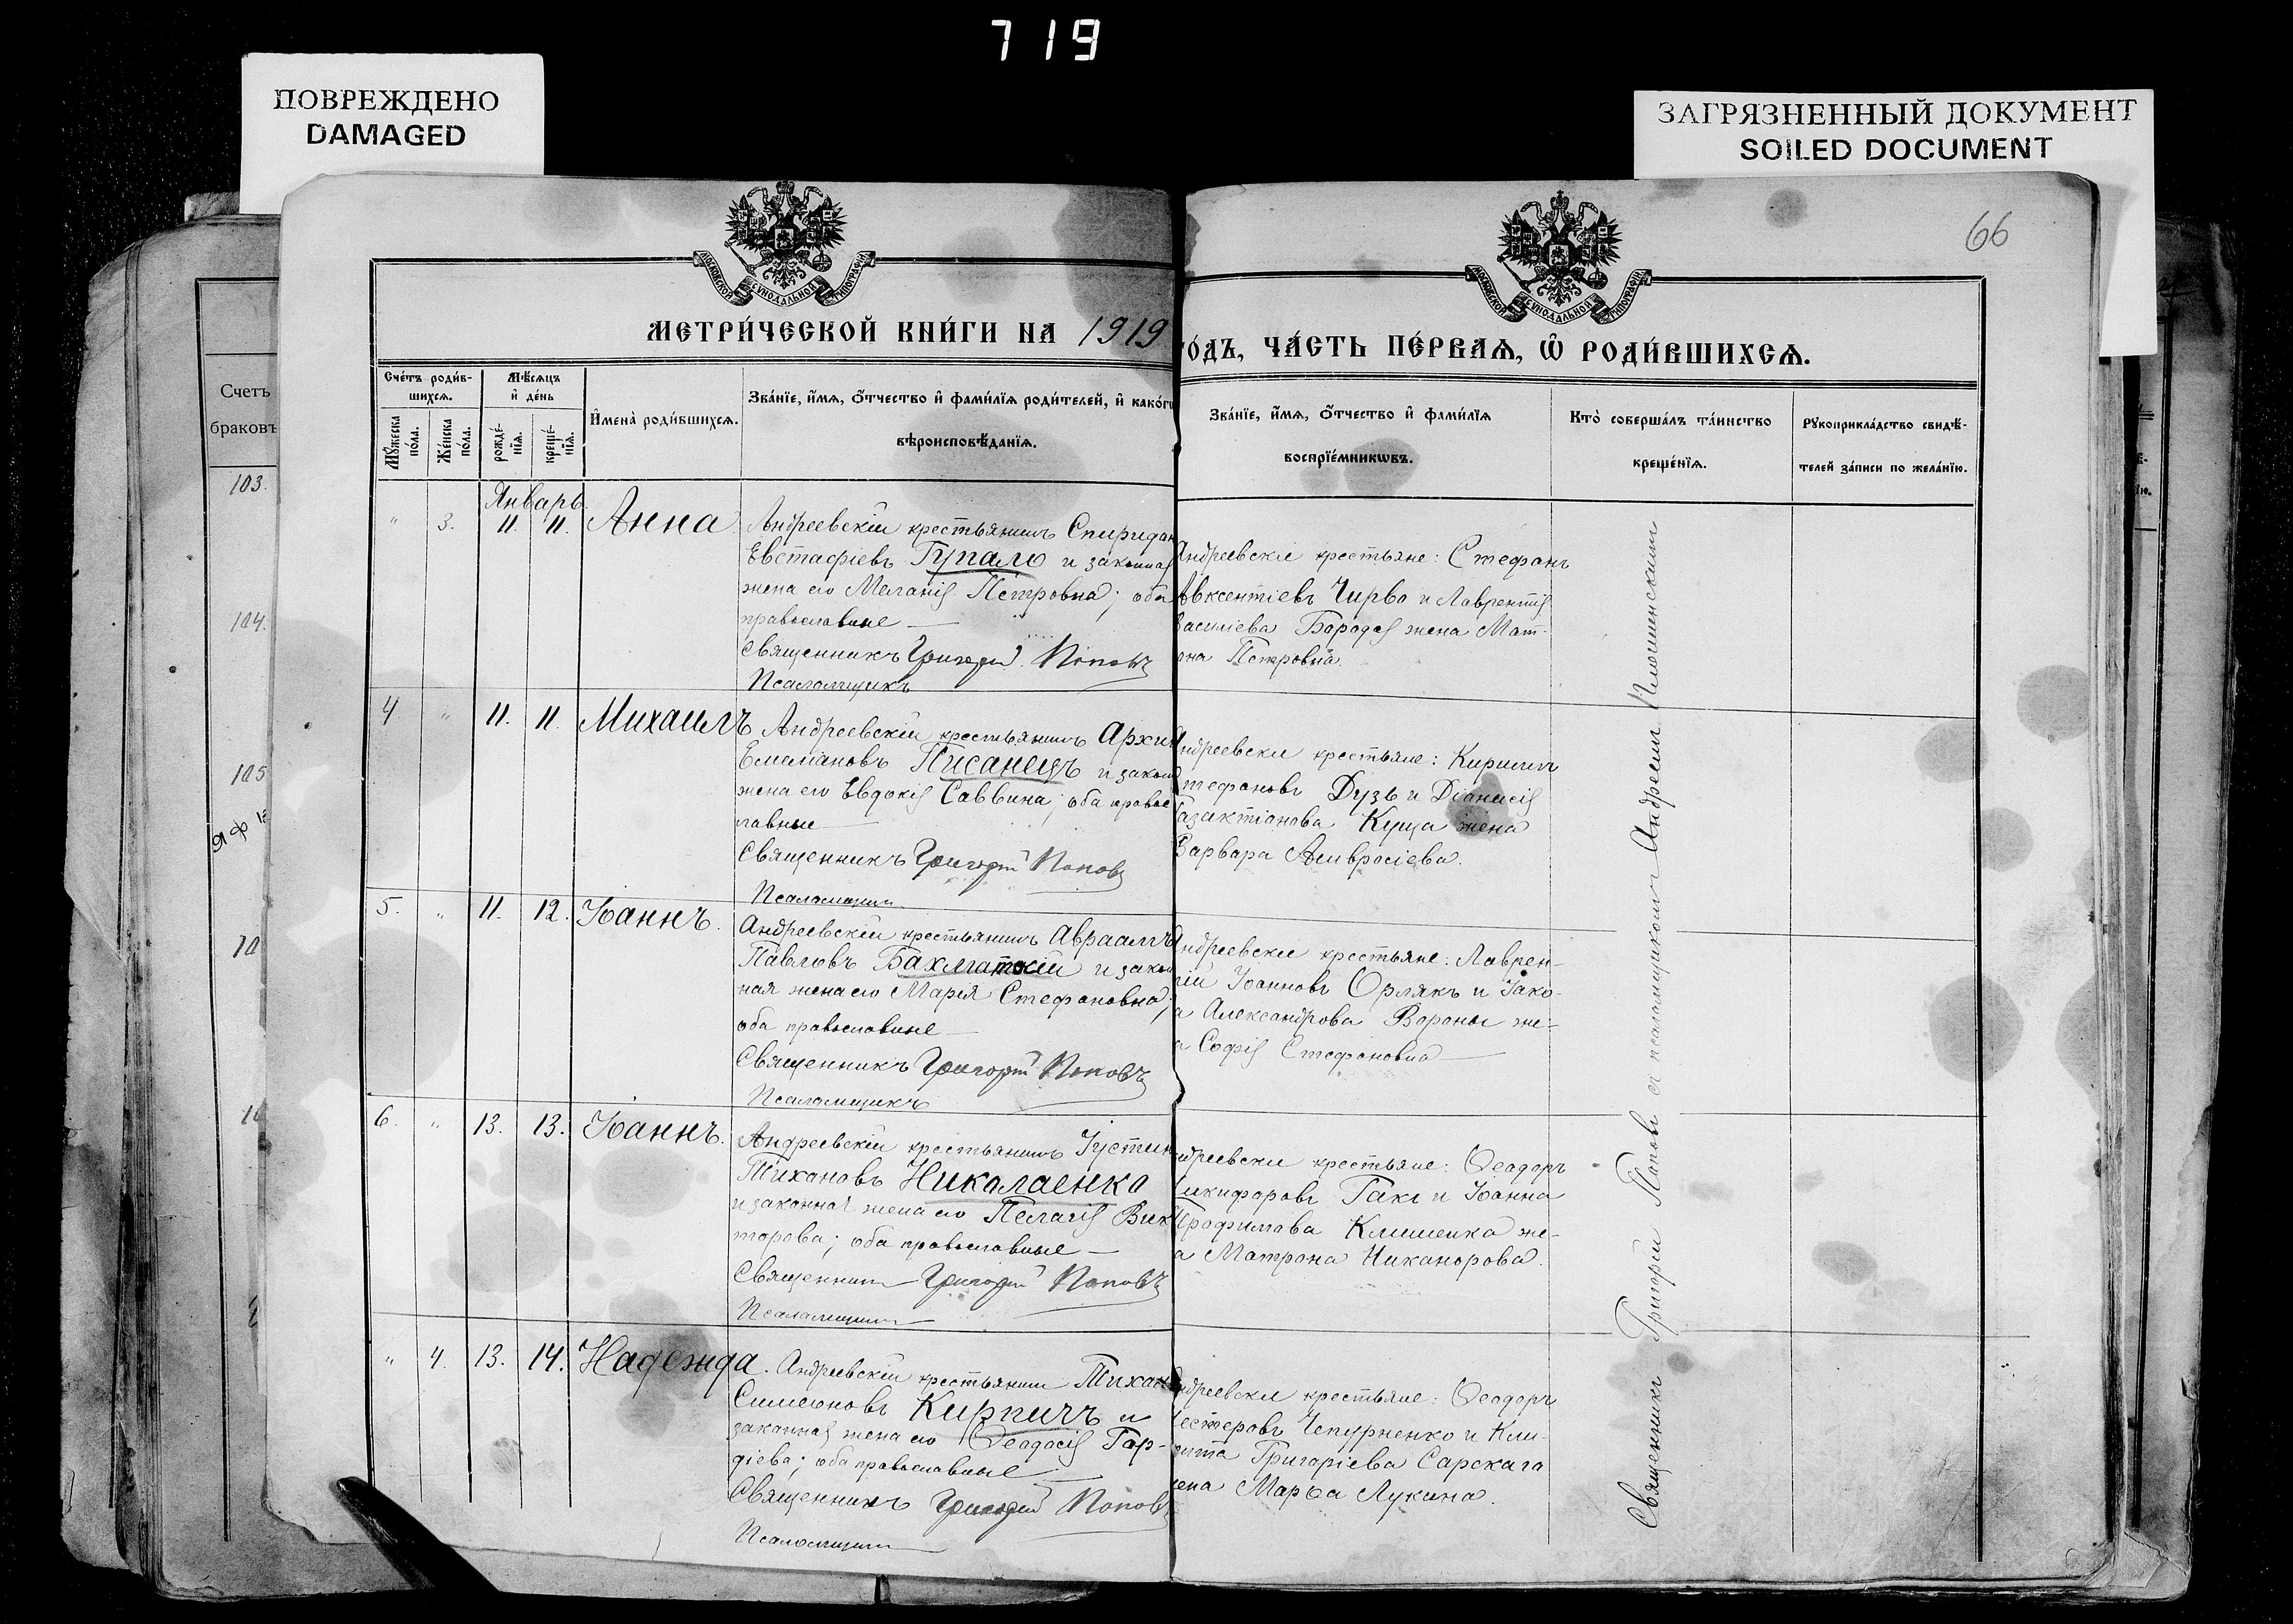 719
ПОВРЕЖДЕНО
DAMAGED
ЗАГРЯЗНЕННЫЙ ДОКУМЕНТ
SOILED DOCUMENT
66
Счетъ
браковъ
103.
104.
105
МОСКОВСКОЙ СѴНОДАЛЬНОЙ ТИПОГРАФІИ
МОСКОВСКОЙ СѴНОДАЛЬНОЙ ТИПОГРАФІИ
МЕТРИ́ЧЕСКОЙ КНИ́ГИ НА 1919
го́дъ, ЧА́СТЬ ПЕ́РВАѦ, Ѡ҆ РОДИ́ВШИХСѦ.
Сче́тъ роди́в-
шихсѧ.
Мꙋ́жеска по́ла.
Же́нска по́ла.
Мѣ́сѧцъ
и҆ де́нь
рожде́-
нїѧ.
креще́-
нїѧ.
И҆мена̀ роди́вшихсѧ.
Зва́нїе, и҆́мѧ, ѻ҆́тчество и҆ фами́лїѧ роди́телей, и҆ како́гѡ
вѣроисповѣ́данїѧ.
Зва́нїе, и҆́мѧ, ѻ҆́тчество и҆ фами́лїѧ
воспрїе́мникѡвъ.
Кто̀ соверша́лъ та́инство
креще́нїѧ.
Рꙋкоприкла́дство свидѣ́-
телей за́писи по жела́нїю.
Январь.
" 3. 11. 11. Анна
Андреевскій крестьянинъ Спиридон
Евстафіевъ Гупало и законная
жена его Меланія Петровна; оба
православные —
Священникъ Григорій Поповъ
Псаломщикъ
Андреевскіе крестьяне: Стефанъ
Авксентіевъ Чирва и Лаврентія
Василіева Бородая жена Мат-
рона Петровна.
4 " 11. 11. Михаилъ
Андреевскій крестьянинъ Архип
Емеліановъ Писанецъ и закон
жена его Евдокія Саввина; оба правос
лавные —
Священникъ Григорій Поповъ
Псаломщикъ
Андреевскіе крестьяне: Кириллъ
Стефановъ Дузь и Діонисія
Куща жена
Варвара Амвросіева.
5. " 11. 12. Іоаннъ.
Андреевскій крестьянинъ Авраамъ
Павловъ Бахматскій и закон
ная жена его Марія Стефановна;
оба православные —
Священникъ Григорій Поповъ
Псаломщикъ
Андреевскіе крестьяне: Лаврен-
тій Іоанновъ Орлякъ и Іако-
а Александрова Вороны же-
а Софія Стефановна —
6. " 13. 13. Іоаннъ.
Андреевскій крестьянинъ Іустин
Тихоновъ Николаенко
и законная жена его Пелагія Вик
торова; оба православные —
Священникъ Григорій Поповъ
Псаломщикъ
Андреевскіе крестьяне: Ѳеодоръ
Никифоровъ Гакъ и Іоанна
Трофимова Клименка же-
а Матрона Никанорова.
" 4. 13. 14. Надежда.
Андреевскій крестьянинъ Тихон
Симеоновъ Кирпичъ и
законная жена его Ѳеодосія Гор-
діева; оба православные —
Священникъ Григорій Поповъ
Псаломщикъ
Андреевскіе крестьяне: Ѳеодоръ
Нестеровъ Чепурненко и Кли-
мента Григоріева Сарскаго
жена Марѳа Лукина.
Священникъ Григорій Поповъ съ псаломщикомъ Андреемъ Плошинскимъ